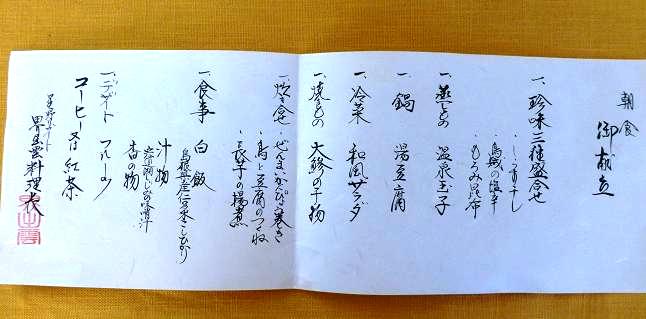 朝食
御献立
一、珍味三種盛合せ
・しらす干し
・烏賊の塩辛
・もろみ昆布
一、蒸しもの 温泉玉子
一、鍋 湯豆腐
一、冷菜 和風サラダ
一、焼きもの 大鯵の干物
一、炊き合せ ・ぜんまいかぴん巻き
・鳥と豆腐のつくね
・長芋の揚煮
一、食事 白飯
島根県産仁多米こしひかり
汁物
宍道湖しじみの味噌汁
香の物
一、デザート フルーツ
コーヒー又は紅茶
星野リゾート
界 出雲 料理長